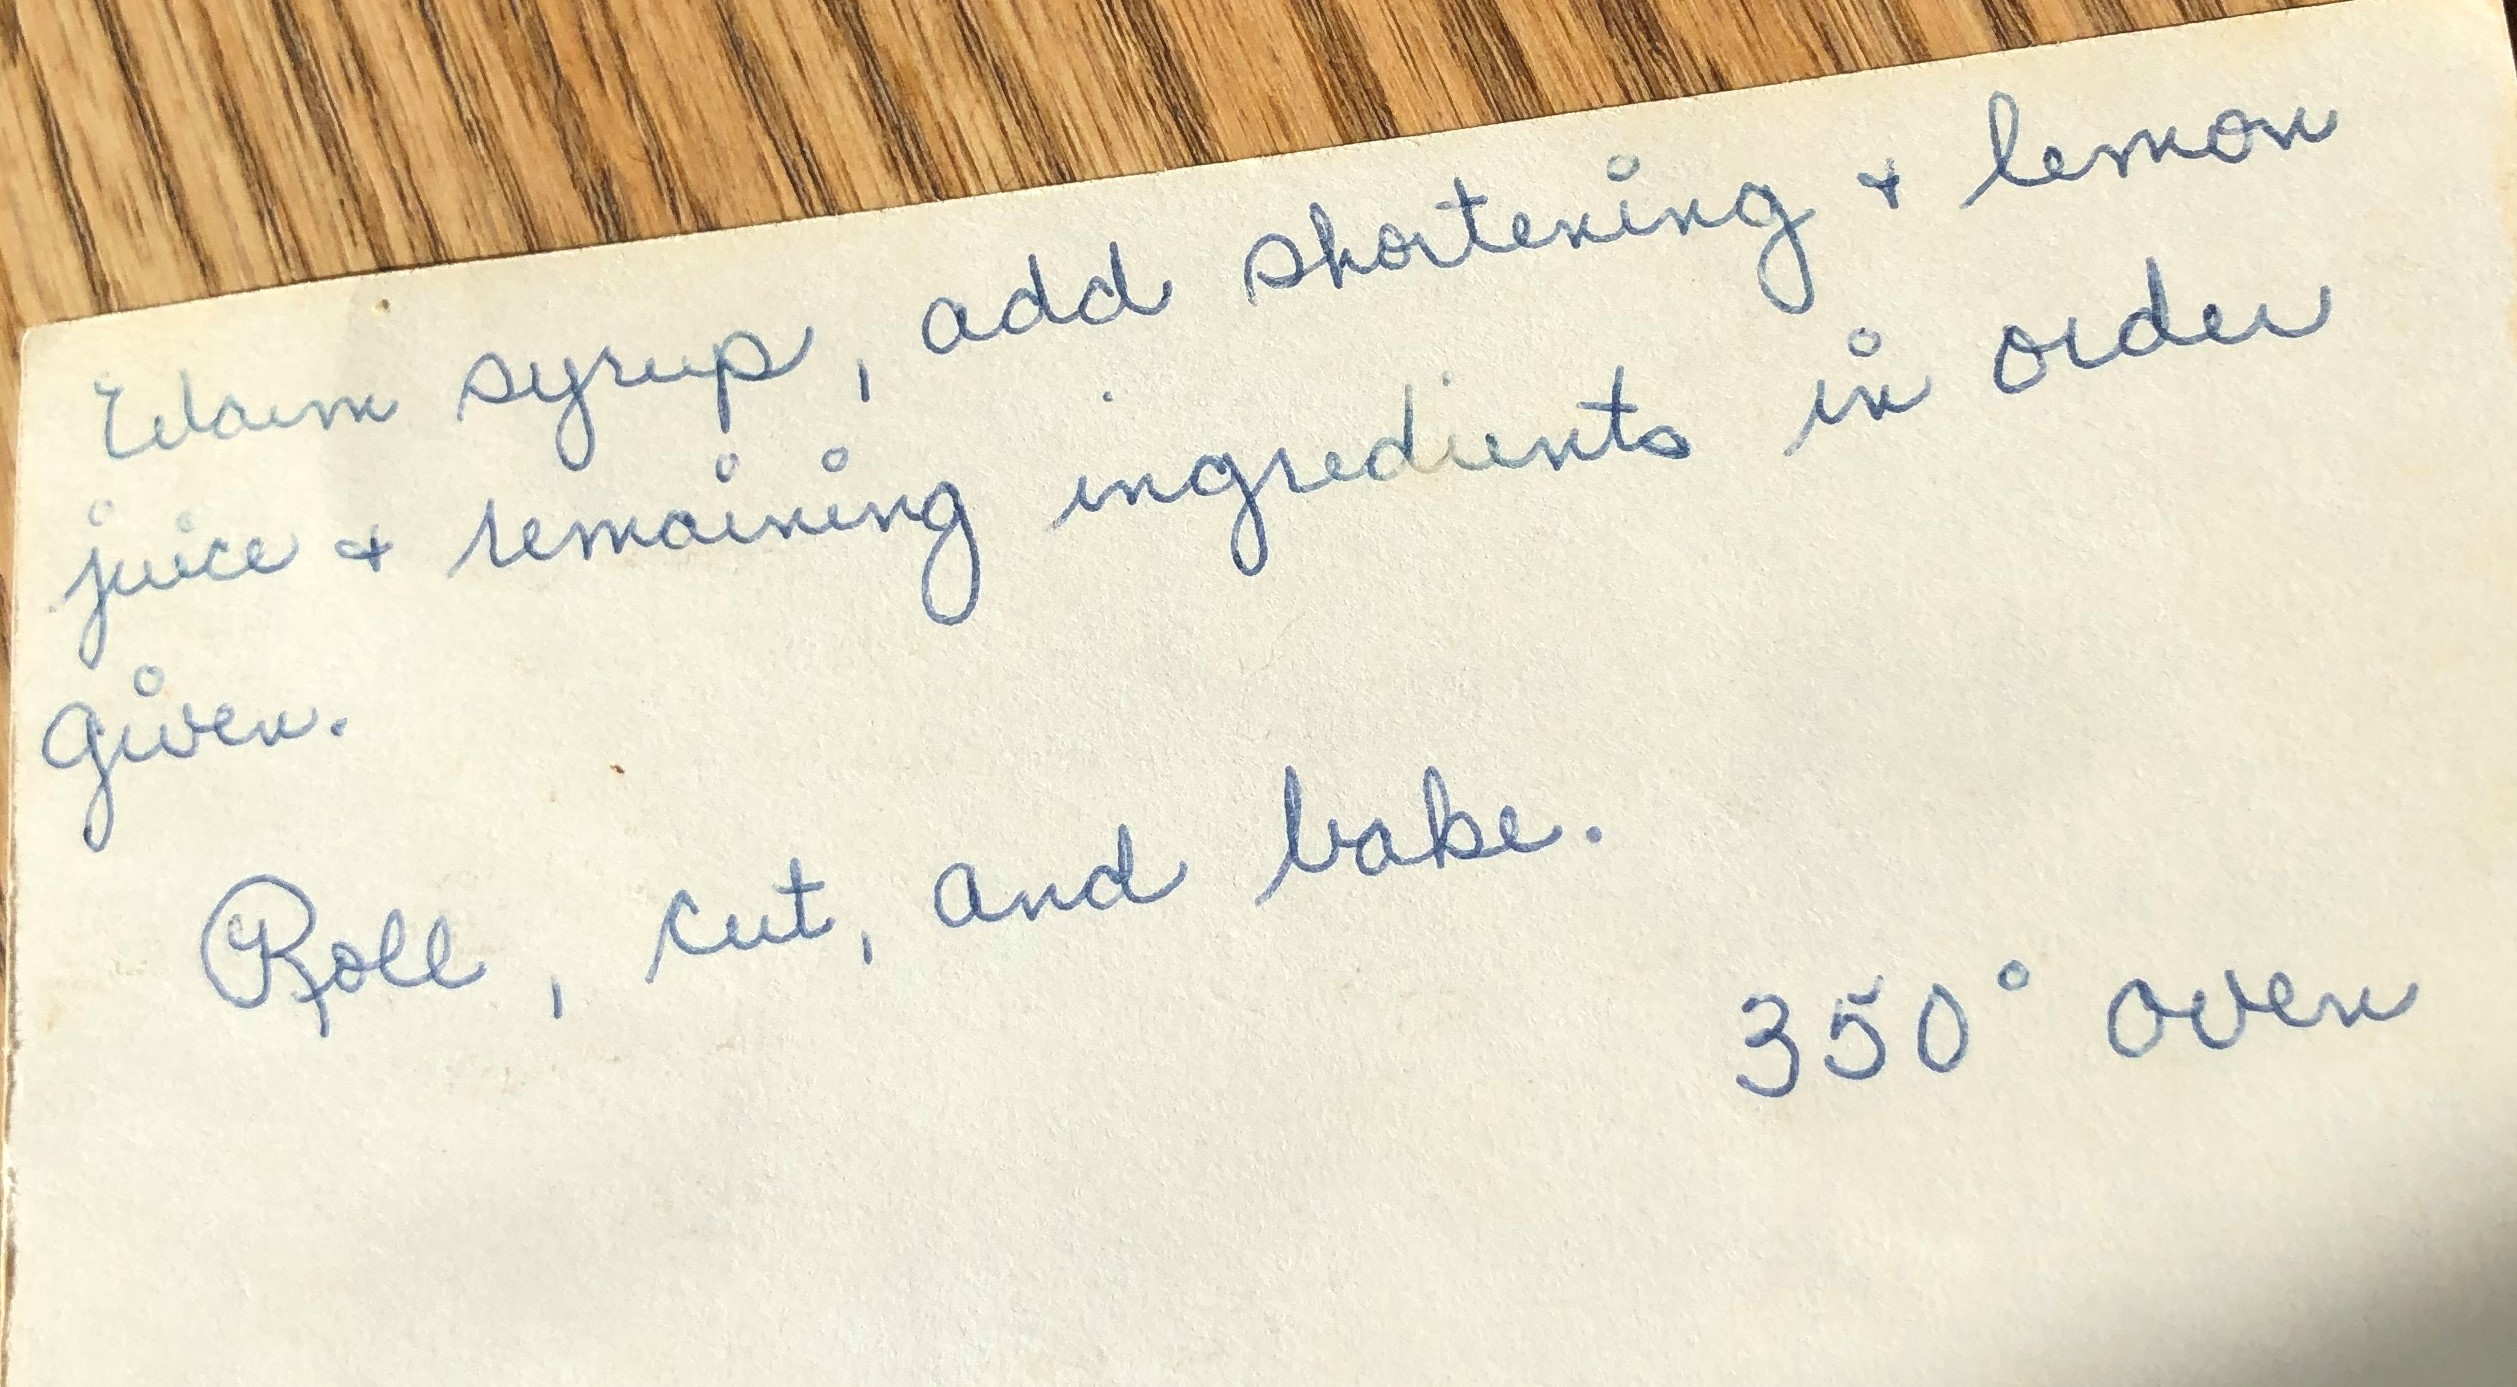 Warm syrup, add shortening & lemon
juice & remaining ingredients in order
given.
Roll, cut, and bake.
350° oven